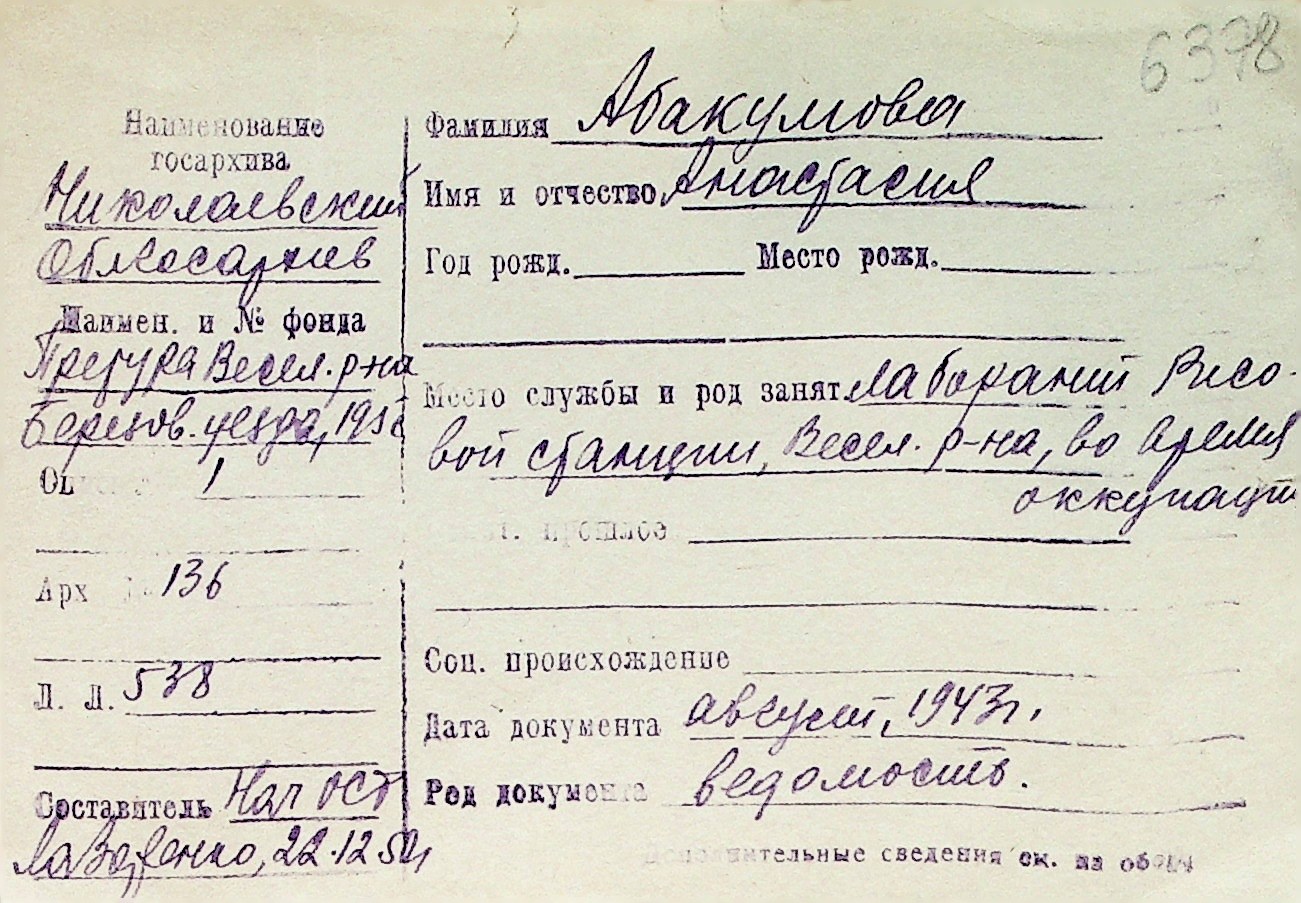 6378
Наименование
госархива
Николаевский
Облгосархив
Наимен. и № фонда
Претура Весел. р-на
Березов. уезда,
1
Арх 136
Л. Л. 538
Составитель Нач ОСТ
22.12.54
Фамилия Абакумова
Имя и отчество Анастасия
Год рожд. Место рожд.
Место службы и род занят. лаборант
вой станции, Весел. р-на, во время
оккупации
прошлое
Соц. происхождение
Дата документа август, 1943г.
Род документа ведомость.
Дополнительные сведения см. на обор.